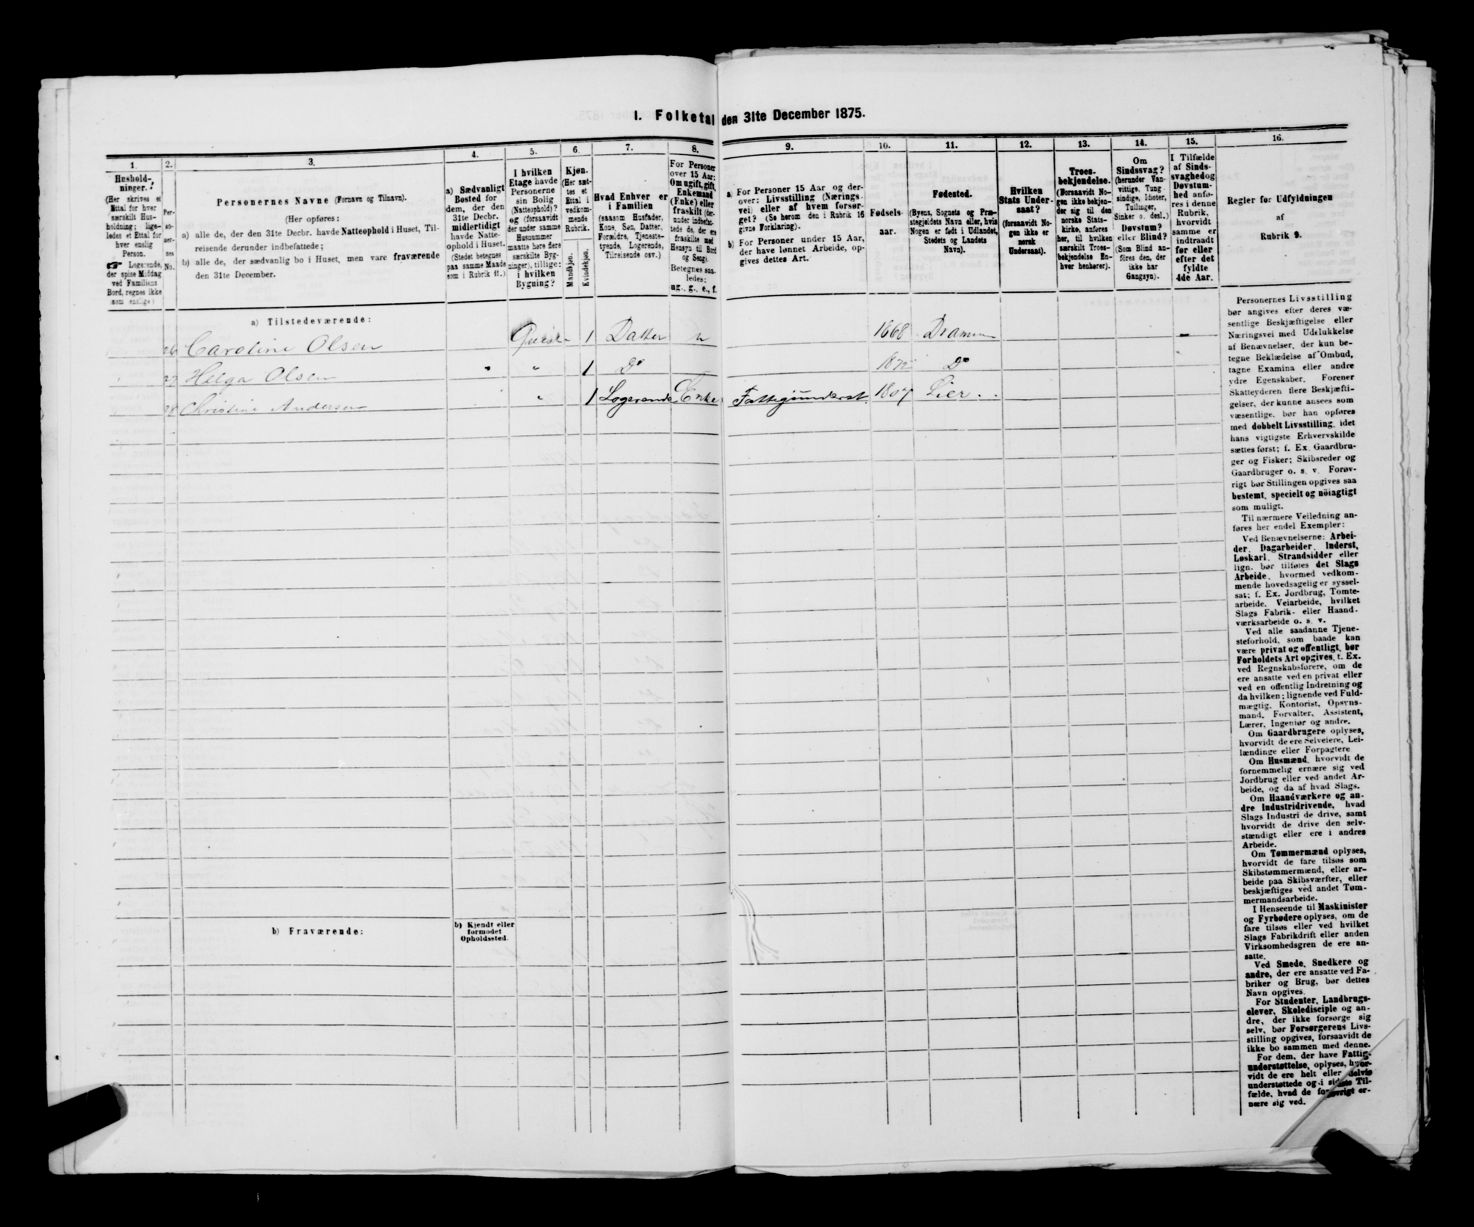 I. Folketal den 31te December 1875.
1.
2.
3.
4.
5.
6.
7.
8.
9.
10.
11.
12.
13.
14.
15.
16.
Hushold-
ninger.
(Her skrives et
Ettal for hver
særskilt Hus-
holdning; lige-
ledes et Ettal for
hver enslig
Person.
☛ Logerende,
der spise Middag
ved Familiens
Bord, regnes ikke
som enslige)
Per-
so-
ner-
nes
No.
Personernes Navne (Fornavn og Tilnavn).
(Her opføres:
a) alle de, der den 31te Decbr. havde Natteophold i Huset, Til-
reisende derunder indbefattede;
b) alle de, der sædvanlig bo i Huset, men vare fraværende
den 31te December.
a) Sædvanligt
Bosted for
dem, der den
31te Decbr.
midlertidigt
havde Natte-
ophold i Huset.
(Stedet betegnes
paa samme Maade
som i Rubrik 11.)
I hvilken
Etage havde
Personerne
sin Bolig
(Natteophold)?
og (forsaavidt
der under samme
Husnummer
maatte høre flere
særskilte Byg-
ninger), tillige:
i hvilken
Bygning?
Kjøn.
(Her sæt-
tes et
Ettal i
vedkom-
mende
Rubrik.
Mandkjøn.
Kvindekjøn.
Hvad Enhver er
i Familien
(saasom Husfader,
Kone, Søn, Datter,
Forældre, Tjeneste-
tyende, Logerende,
Tilreisende osv.)
For Personer
over 15 Aar:
Om ugift, gift,
Enkemand
(Enke) eller
fraskilt (der-
under indbefat-
tede de, der ere
fraskilte med
Hensyn til Bord
og Seng).
Betegnes saa-
ledes:
ug., g., e., f.
a) For Personer 15 Aar og der-
over: Livsstilling (Nærings-
vei) eller af hvem forsør-
get? (Se herom den i Rubrik 16
givne Forklaring).
b) For Personer under 15 Aar,
der have lønnet Arbeide, op-
gives dettes Art.
Fødsels-
aar.
Fødested.
(Byens, Sognets og Præ-
stegjeldets Navn eller, hvis
Nogen er født i Udlandet,
Stedets og Landets
Navn).
Hvilken
Stats Under-
saat?
(forsaavidt No-
gen ikke er
norsk
Undersaat).
Troes-
bekjendelse.
(Forsaavidt No-
gen ikke bekjen-
der sig til den
norske Stats-
kirke, anføres
her, til hvilken
særskilt Troes-
bekjendelse En-
hver henhører).
Om
Sindssvag?
(herunder Van-
vittige, Tung-
sindige, Idioter,
Tullinger,
Sinker o. desl.)
Døvstum?
eller Blind?
(Som Blind an-
føres den, der
ikke har
Gangsyn).
I Tilfælde
af Sinds-
svaghed og
Døvstum-
hed anfø-
res i denne
Rubrik,
hvorvidt
samme er
indtraadt
før eller
efter det
fyldte
4de Aar.
Regler for Udfyldningen
af
Rubrik 9.
a) Tilstedeværende:
26 Caroline Olsen 1 Datter 1868 Drammen
27 Helga Olsen " " 1 Do Do
28 Christine Andersen " 1 Logerende Enke Fattigunderst. 1807 Lier
b) Fraværende:
b) Kjendt eller
formodet
Opholdssted.
Personernes Livsstilling
bør angives efter deres væ-
sentlige Beskjæftigelse eller
Næringsvei med Udelukkelse
af Benævnelser, der kun be-
tegne Beklædelse af Ombud,
tagne Examina eller andre
ydre Egenskaber. Forener
Skatteyderen flere Beskjæfti-
gelser, der kunne ansees som
væsentlige, bør han opføres
med dobbelt Livsstilling, idet
hans vigtigste Erhvervskilde
sættes først; f. Ex. Gaardbru-
ger og Fisker; Skibsreder og
Gaardbruger o. s. v. Forøv-
rigt bør Stillingen opgives saa
bestemt, specielt og nöiagtigt
som muligt.
Til nærmere Veiledning an-
føres her endel Exempler:
Ved Benævnelserne: Arbei-
der, Dagarbeider, Inderst,
Løskarl, Strandsidder eller
lign. bør tilføies det Slags
Arbeide, hvormed vedkom-
mende hovedsagelig er syssel-
sat; f. Ex. Jordbrug, Tomte-
arbeide, Veiarbeide, hvilket
Slags Fabrik- eller Haand-
værksarbeide o. s. v.
Ved alle saadanne Tjene-
steforhold, som baade kan
være privat og offentligt, bør
Forholdets Art opgives, f. Ex.
ved Regnskabsførere, om de
ere ansatte ved en privat eller
ved en offentlig Indretning og
da hvilken; lignende ved Fuld-
mægtig, Kontorist, Opsyns-
mand, Forvalter, Assistent,
Lærer, Ingeniør og andre.
Om Gaardbrugere oplyses,
hvorvidt de ere Selveiere, Lei-
lændinge eller Forpagtere
Om Husmænd, hvorvidt de
fornemmelig ernære sig ved
Jordbrug eller ved andet Ar-
beide, og da af hvad Slags.
Om Haandværkere og an-
dre Industridrivende, hvad
Slags Industri de drive, samt
hvorvidt de drive den selv-
stændigt eller ere i andres
Arbeide.
Om Tømmermænd oplyses,
hvorvidt de fare tilsøs som
Skibstømmermænd, eller ar-
beide paa Skibsværfter, eller
beskjæftiges ved andet Tøm-
mermandsarbeide.
I Henseende til Maskinister
og Fyrbødere oplyses, om de
fare tilsøs eller ved hvilket
Slags Fabrikdrift eller anden
Virksomhedsgren de ere an-
satte.
Ved Smede, Snedkere og
andre, der ere ansatte ved Fa-
briker og Brug, bør dettes
Navn opgives.
For Studenter, Landbrugs-
elever, Skoledisciple og an-
dre, der ikke forsørge sig
selv, bør Forsørgerens Livs-
stilling opgives, forsaavidt de
ikke bo sammen med denne.
For dem, der have Fattig-
understøttelse, oplyses, hvor-
vidt de ere helt eller delvis
understøttede og i sidste Til-
fælde, hvad de forøvrigt er-
nære sig ved.